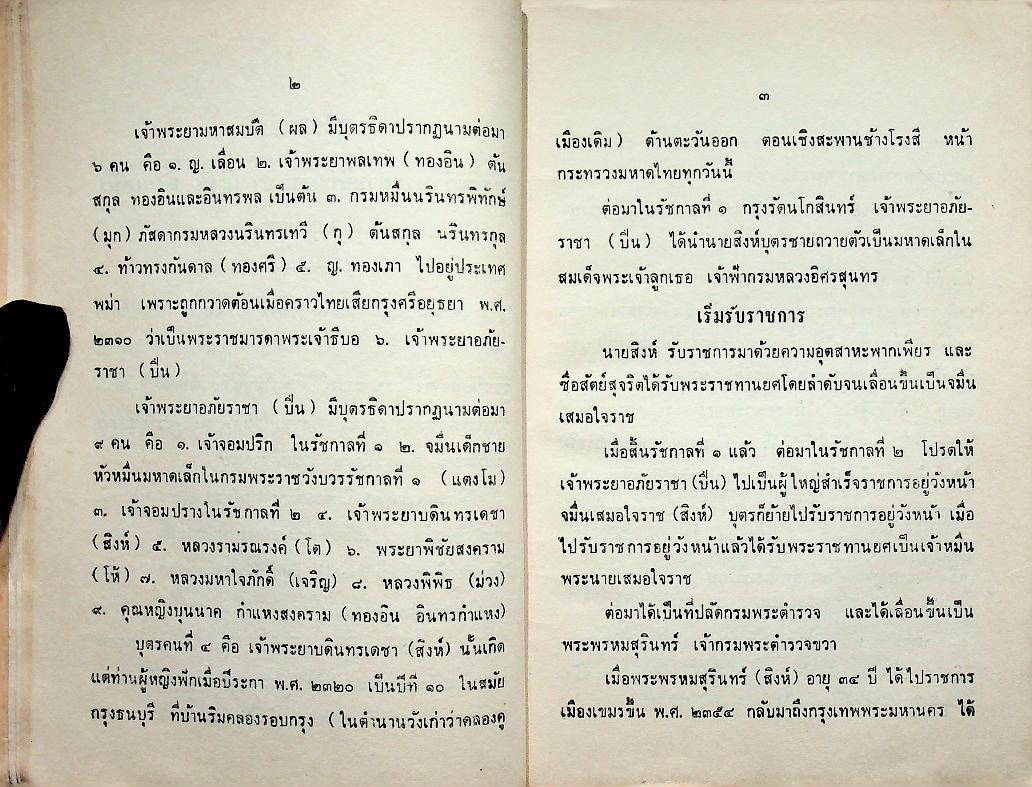 ๒
เจ้าพระยามหาสมบัติ (ผล) มีบุตรธิดาปรากฏนามต่อมา
๖ คน คือ ๑. ญ. เลื่อน ๒. เจ้าพระยาพลเทพ (ทองอิน) ต้น
สกุล ทองอินและอินทรพล เป็นต้น ๓. กรมหมื่นนรินทรพิทักษ์
(มุก) ภัสดากรมหลวงนรินทรเทวี (กุ) ต้นสกุล นรินทรกุล
๔. ท้าวทรงกันดาล (ทองศรี) ๕. ญ. ทองเภา ไปอยู่ประเทศ
พม่า เพราะถูกกวาดต้อนเมื่อคราวไทยเสียกรุงศรีอยุธยา พ.ศ.
๒๓๑๐ ว่าเป็นพระราชมารดาพระเจ้าธีบอ ๖. เจ้าพระยาอภัย-
ราชา (ปิ่น)
เจ้าพระยาอภัยราชา (ปิ่น) มีบุตรธิดาปรากฏนามต่อมา
๙ คน คือ ๑. เจ้าจอมปริก ในรัชกาลที่ ๑ ๒. จมื่นเด็กชาย
หัวหมื่นมหาดเล็กในกรมพระราชวังบวรรัชกาลที่ ๑ (แตงโม)
๓. เจ้าจอมปรางในรัชกาลที่ ๒ ๔. เจ้าพระยาบดินทรเดชา
(สิงห์) ๕. หลวงรามรณรงค์ (โต) ๖. พระยาพิชัยสงคราม
(โห้) ๗. หลวงมหาใจภักดิ์ (เจริญ) ๘. หลวงพิพิธ (ม่วง)
๙. คุณหญิงบุนนาค กำแหงสงคราม (ทองอิน อินทรกำแหง)
บุตรคนที่ ๔ คือ เจ้าพระยาบดินทรเดชา (สิงห์) นั้นเกิด
แต่ท่านผู้หญิงฟักเมื่อปีระกา พ.ศ. ๒๓๒๐ เป็นปีที่ ๑๐ ในสมัย
กรุงธนบุรี ที่บ้านริมคลองรอบกรุง (ในตำนานวังเก่าว่าคลองคู
๓
เมืองเดิม) ด้านตะวันออก ตอนเชิงสะพานช้างโรงสี หน้า
กระทรวงมหาดไทยทุกวันนี้
ต่อมาในรัชกาลที่ ๑ กรุงรัตนโกสินทร์ เจ้าพระยาอภัย-
ราชา (ปิ่น) ได้นำนายสิงห์บุตรชายถวายตัวเป็นมหาดเล็กใน
สมเด็จพระเจ้าลูกเธอ เจ้าฟ้ากรมหลวงอิศรสุนทร
เริ่มรับราชการ
นายสิงห์ รับราชการมาด้วยความอุตสาหะพากเพียร และ
ซื่อสัตย์สุจริตได้รับพระราชทานยศโดยลำดับจนเลื่อนขึ้นเป็นจมื่น
เสมอใจราช
เมื่อสิ้นรัชกาลที่ ๑ แล้ว ต่อมาในรัชกาลที่ ๒ โปรดให้
เจ้าพระยาอภัยราชา (ปิ่น) ไปเป็นผู้ใหญ่สำเร็จราชการอยู่วังหน้า
จมื่นเสมอใจราช (สิงห์) บุตรก็ย้ายไปรับราชการอยู่วังหน้า เมื่อ
ไปรับราชการอยู่วังหน้าแล้วได้รับพระราชทานยศเป็นเจ้าหมื่น
พระนายเสมอใจราช
ต่อมาได้เป็นที่ปลัดกรมพระตำรวจ และได้เลื่อนขึ้นเป็น
พระพรหมสุรินทร์ เจ้ากรมพระตำรวจขวา
เมื่อพระพรหมสุรินทร์ (สิงห์) อายุ ๓๔ ปี ได้ไปราชการ
เมืองเขมรขึ้น พ.ศ. ๒๓๕๔ กลับมาถึงกรุงเทพพระมหานคร ได้